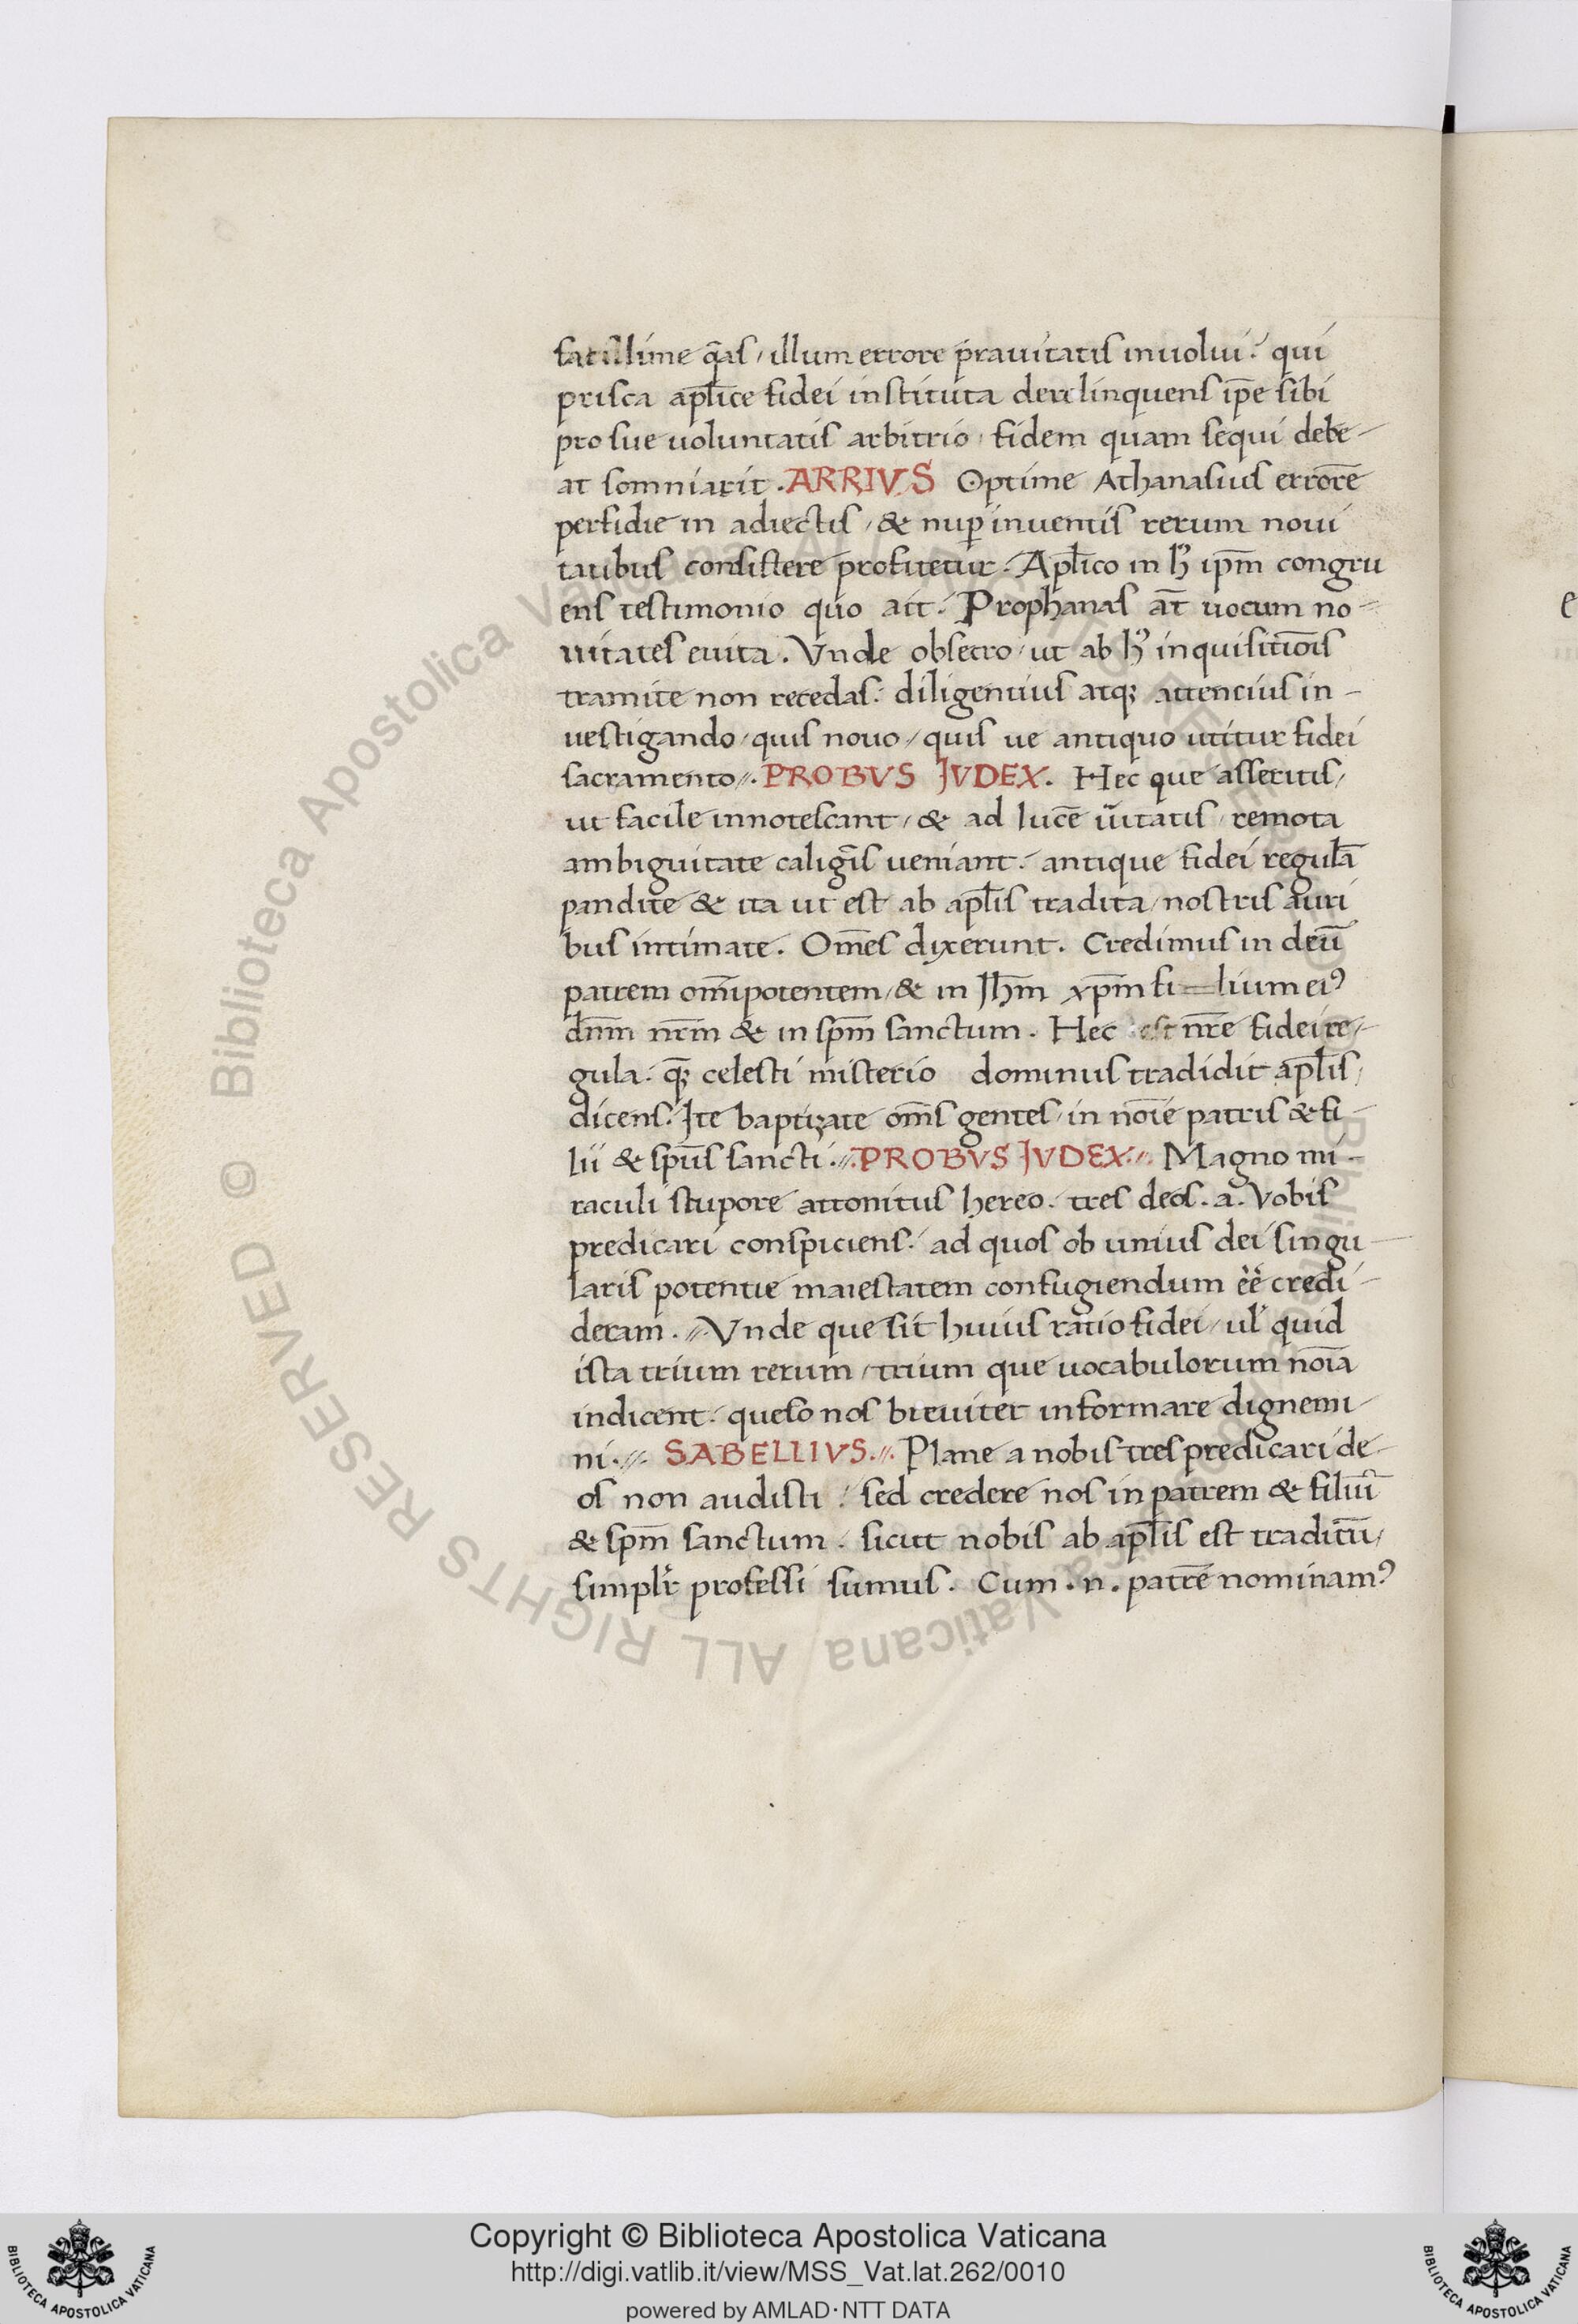 facillime q̄as / illum errore prauitatis inuolui : qui
prisca ap̄lice fidei instituta derelinquens ip̄e sibi
pro sue uoluntatis arbitrio / fidem quam sequi debe-
at somniarit . ARRIVS Optime Athanasius errorē
perfidie in adiectis / & nup̄ inuentis rerum noui
tatibus consistere profitetur . Ap̄lico in h̓ ip̄m congru
ens testimonio quo ait : Prophanas āt uocum no-
uitates euita . Vnde obsecro / ut ab h̓ inquisitiōis
tramite non recedas : diligentius atq; attencius in-
uestigando / quis nouo / quis ue antiquo utitur fidei
sacramento //. PROBVS JVDEX . Hec que asseritis /
ut facile innotescant / & ad lucē ūitatis / remota
ambiguitate caligīs ueniant : antique fidei regulā
pandite & ita ut est ab ap̄lis tradita / nostris auri
bus intimate . Om̄es dixerunt . Credimus in deū
patrem om̄ipotentem / & in Jh̄m xp̄m fi=lium ei⁹
dn̄m nr̄m & in sp̄m sanctum . Hec est nr̄e fidei re-
gula : q̄; celesti misterio dominus tradidit ap̄lis /
dicens : Ite baptizate om̄s gentes / in noīe patris & fi-
lii & sp̄us sancti .//. PROBVS JVDEX .//. Magno mi-
raculi stupore attonitus hereo : tres deos . a . Vobis
predicari conspiciens : ad quos ob unius dei singu-
laris potentie maiestatem confugiendum ēē credi-
deram . //. Vnde que sit huius ratio fidei / ul̓ quid
ista trium rerum / trium que uocabulorum noīa
indicent : queso nos breuiter informare dignemi-
ni .//. SABELLIVS .//. Plane a nobis tres predicari de-
os non audisti : sed credere nos in patrem & filiū
& sp̄m sanctum : sicut nobis ab ap̄lis est traditū /
simpl̓r professi sumus . Cum . n . patrē nominam⁹
Biblioteca Apostolica Vaticana ALL RIGHTS RESERVED ©
Copyright © Biblioteca Apostolica Vaticana
http://digi.vatlib.it/view/MSS_Vat.lat.262/0010
powered by AMLAD·NTT DATA
BIBLIOTECA APOSTOLICA VATICANA
BIBLIOTECA APOSTOLICA VATICANA